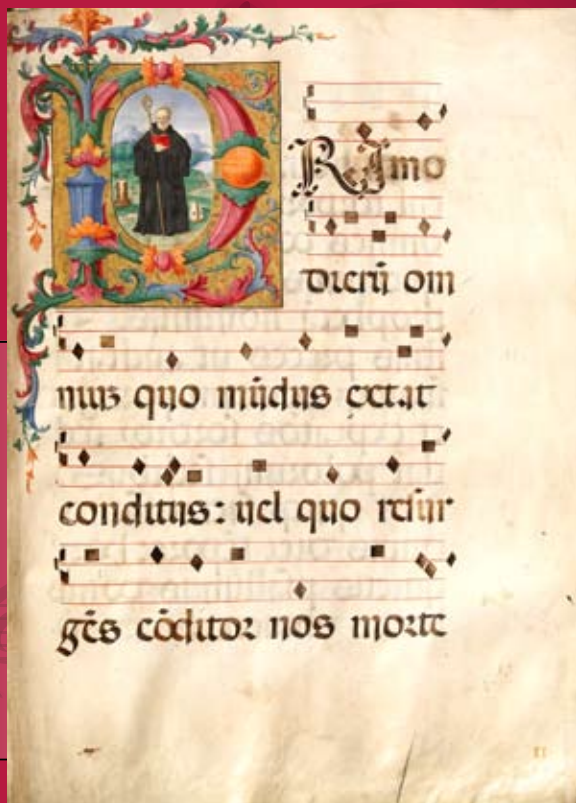 PRImo
dierū om
niuʒ quo mūdus extat
conditus: uel quo resur
gēs cōditor nos morte